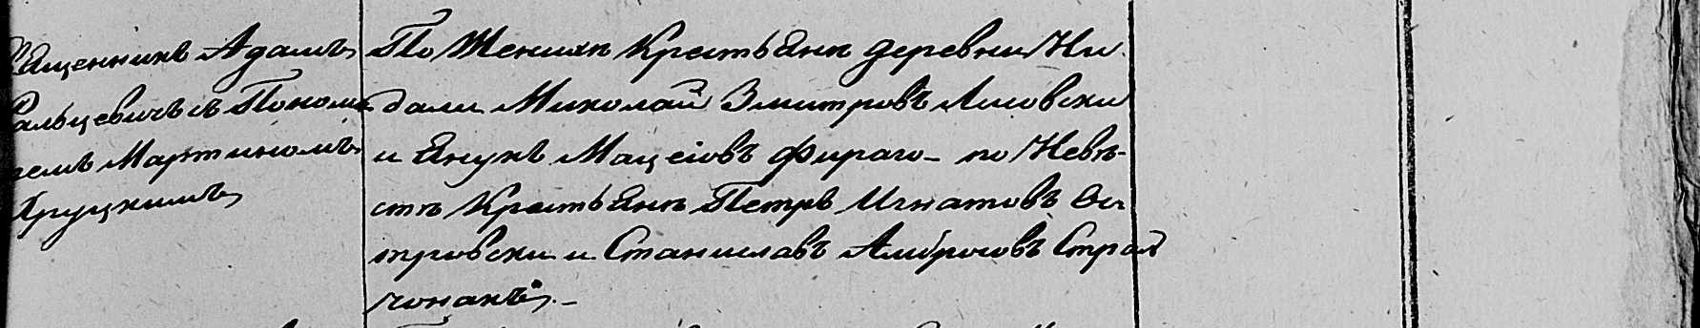 Священникъ Адамъ
Пальцевичъ съ Понома-
ремъ Мартиномъ
Хруцкимъ
По Женихѣ Крестьяне деревни Ни
дали Миколай Змитровъ Лисовски
и Янукъ Мацеіовъ Фираго - по Невѣ-
стѣ Крестьяне Петръ Игнатовъ Ос
тровски и Станиславъ Амбросовъ Страл
чонакъ. -